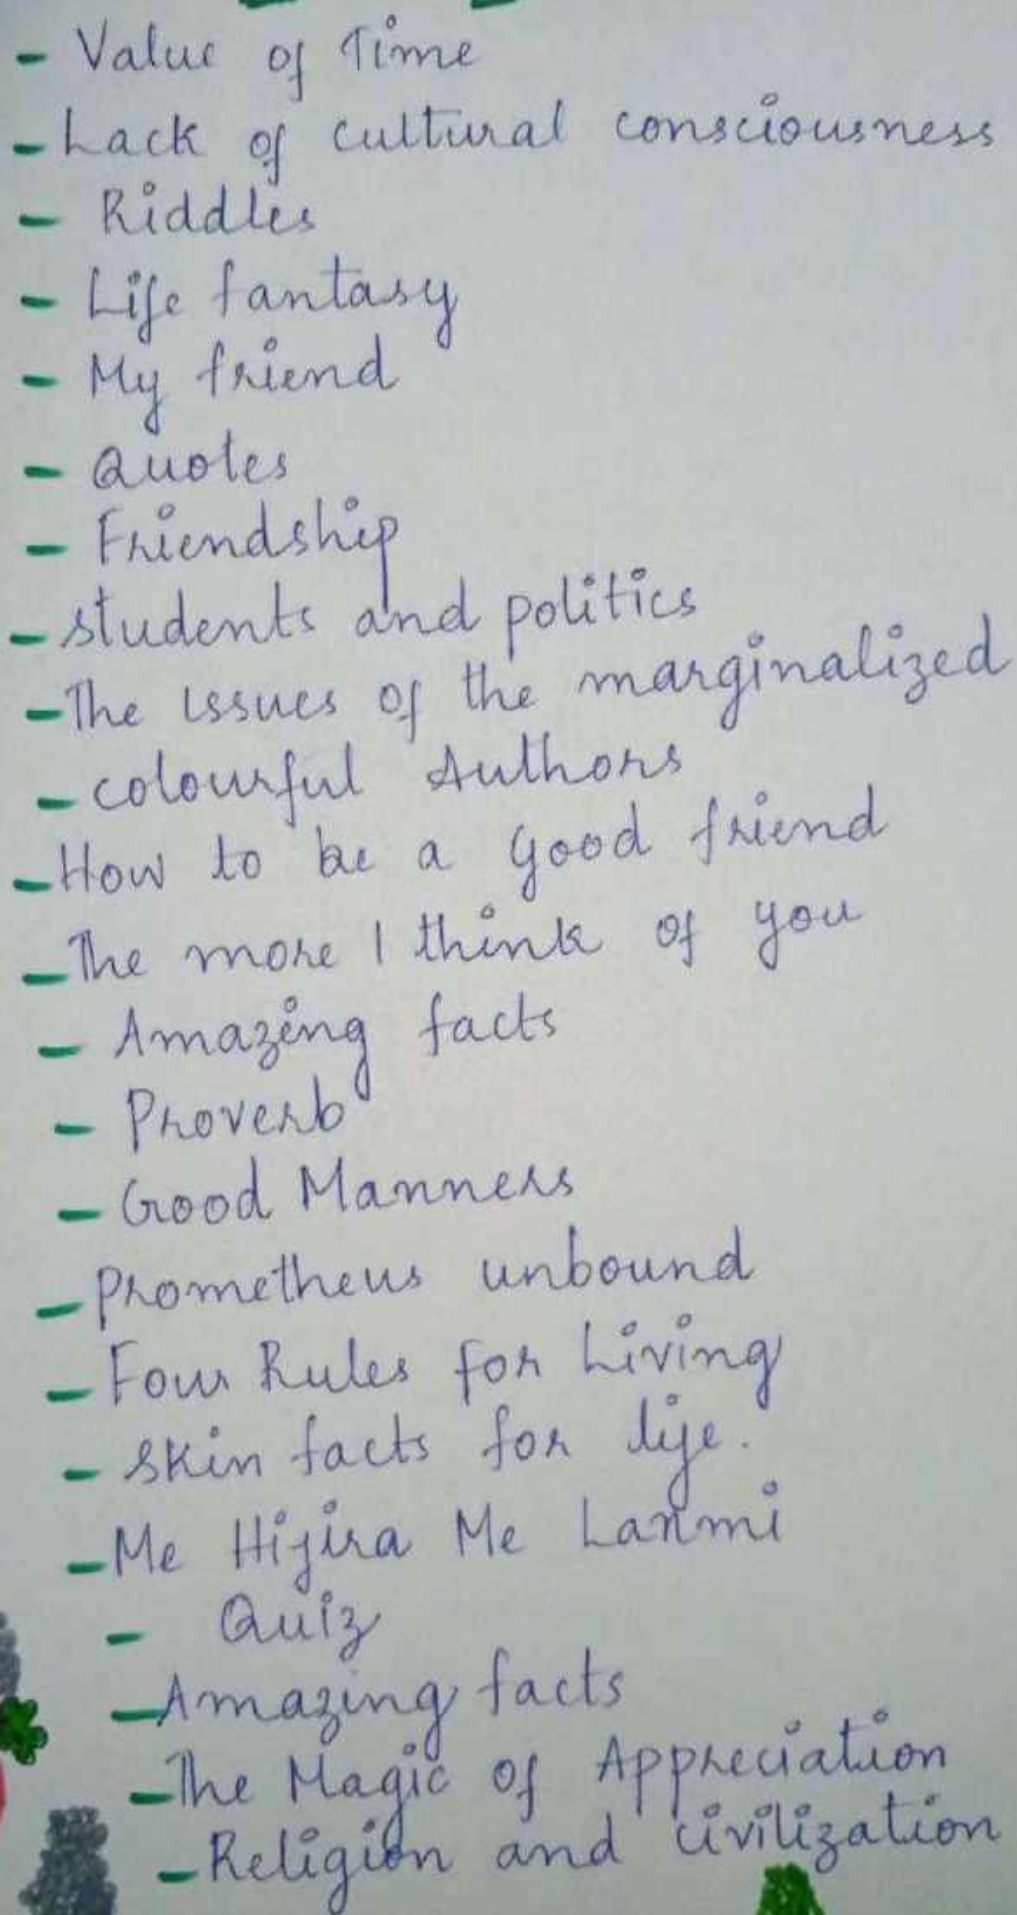 - Value of Time
- Lack of cultural consciousness
- Riddles
- Life fantasy
- My friend
- Quotes
- Friendship
- students and politics
- The issues of the marginalized
- colourful Authors
- How to be a good friend
- The more I think of you
- Amazing facts
- Proverb
- Good Manners
- Prometheus unbound
- Four Rules for Living
- Skin facts for life.
- Me Hijira Me Laxmi
- Quiz
- Amazing facts
- The Magic of Appreciation
- Religion and civilization